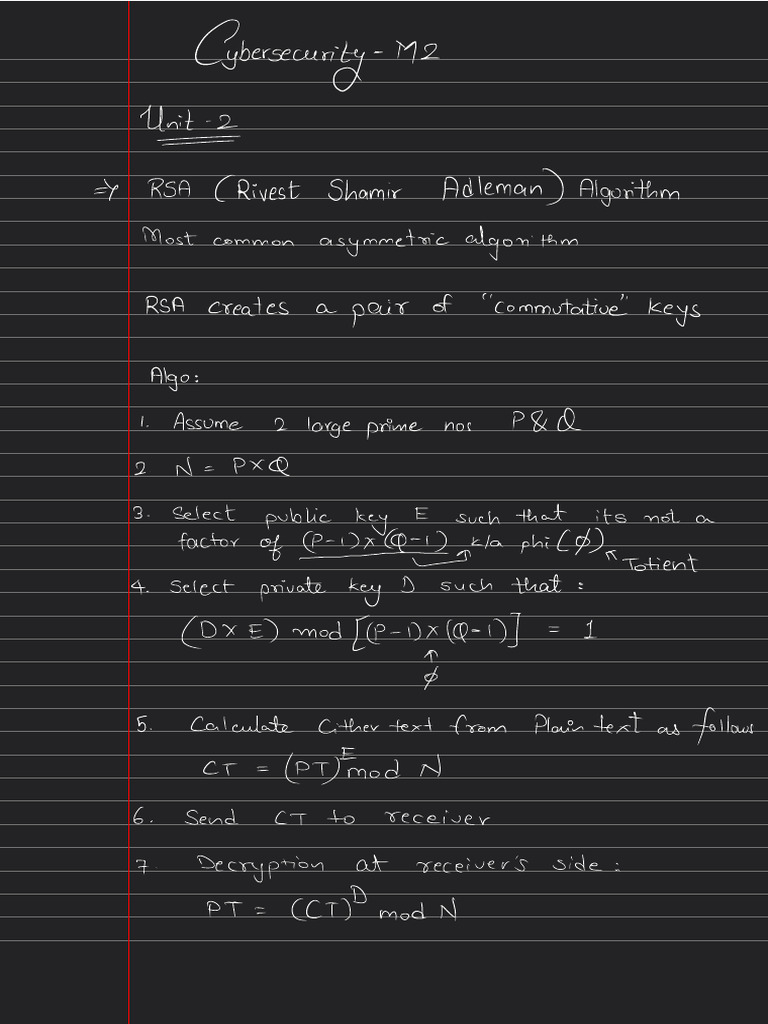 Cybersecurity - M2
Unit - 2
⇒ RSA (Rivest Shamir Adleman) Algorithm
Most common asymmetric algorithm
RSA creates a pair of "commutative" keys
Algo:
1. Assume 2 large prime nos P & Q
2 N = P×Q
3. Select public key E such that its not a
factor of (P-1)×(Q-1) k/a phi (ϕ)
Totient
4. Select private key D such that :
(D×E) mod [(P-1)×(Q-1)] = 1
↑
ϕ
5. Calculate Cither text from Plain text as follows
CT = (PT)^E mod N
6. Send CT to receiver
7. Decryption at receiver's side :
PT = (CT)^D mod N